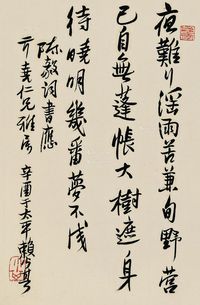 夜難行淫雨苦兼旬野營
已自無蓬帳大樹遮身
待曉明幾番夢不成
陳毅詞書應
亓堯仁兄雅屬
辛酉于太平賴